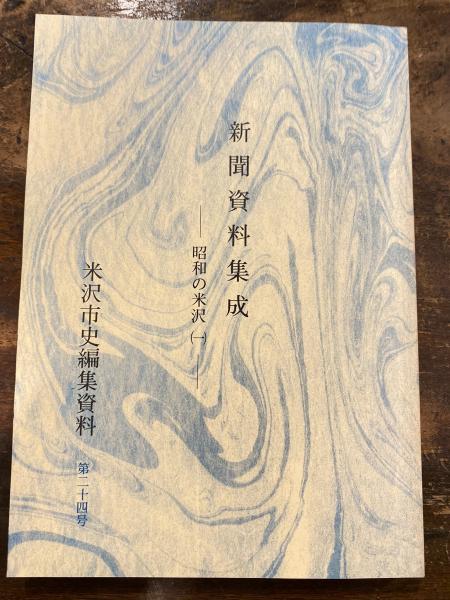 新聞資料集成
― 昭和の米沢 ㈠ ―
米沢市史編集資料 第二十四号